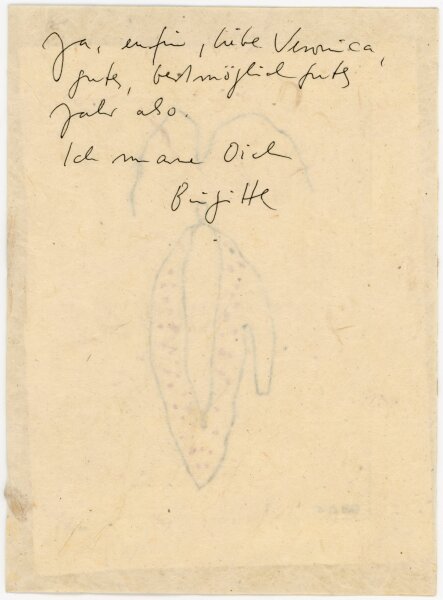 Ja, enfin, liebe Veronica,
gutes, bestmöglich gutes
Jahr also.
Ich umarme Dich
Brigitte